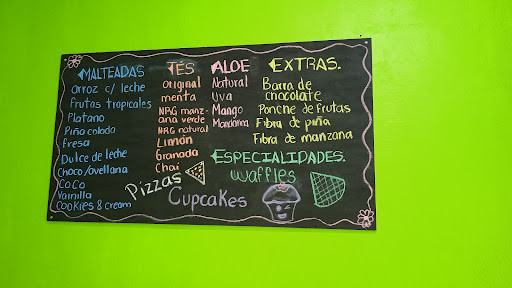 MALTEADAS
arroz c/ leche
frutas tropicales
Platano
Piña colada
fresa
Dulce de leche
Choco/avellana
COCO
Vainilla
COOKIES & cream
TÉS
original
menta
NRG manz-
ana verde
NRG natural
Limón
Granada
Chai
ALOE
Natural
Uva
Mango
Mandarina
EXTRAS.
Barra de
chocolate
Ponche de frutas
Fibra de piña
Fibra de manzana
ESPECIALIDADES.
Waffles
Pizzas
Cupcakes